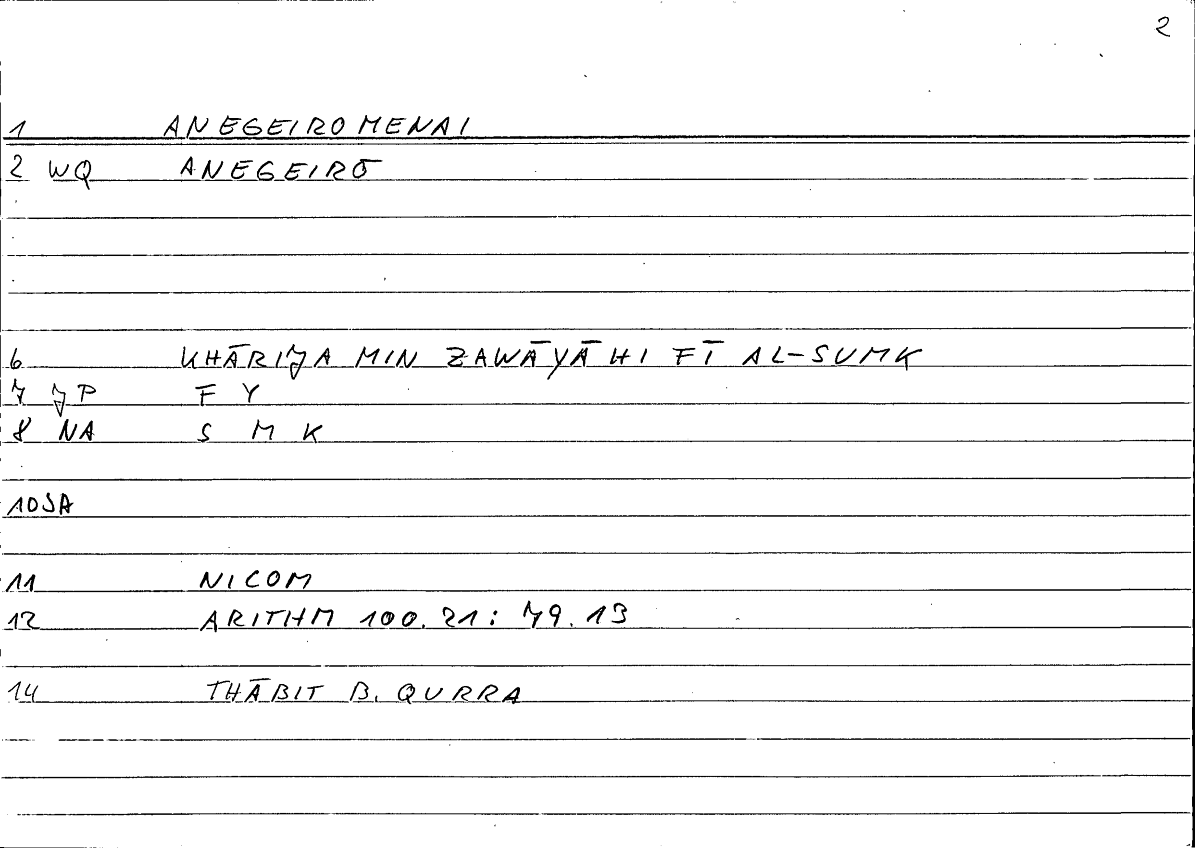 2
1 ANEGEIROMENAI
2 WQ ANEGEIRŌ
6 KHĀRIJA MIN ZAWĀYĀHI FĪ AL-SUMK
7 JP F Y
8 NA S M K
10 SA
11 NICOM
12 ARITHM 100.21: 79.13
14 THĀBIT B. QURRA